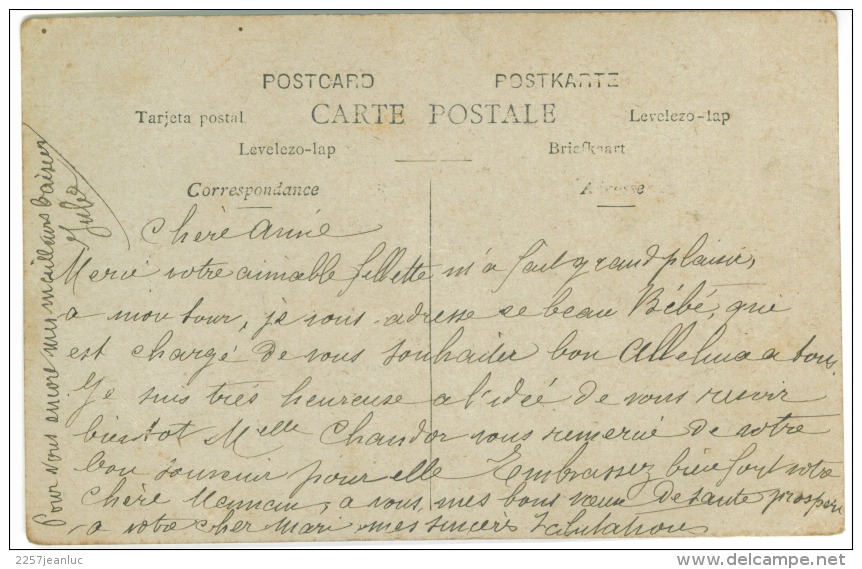 POSTCARD POSTKARTE
Tarjeta postal CARTE POSTALE Levelezo-lap
Levelezo-lap Briefkaart
Correspondance Adresse
Chère Annie
Merci votre aimable fillette m'a fait grand plaisir,
a mon tour, je vous adresse ce beau Bébé, qui
est chargé de vous souhaiter bon Alleluia a tous.
Je suis très heureuse a l'idée de vous revoir
bientot Melle Chandor vous remercie de votre
bon souvenir pour elle Embrassez bien fort votre
chère Maman, a vous, mes bons vœux De santé prosper
a votre cher Mari mes sincères Salutations
Pour vous encore mes meilleurs baisers
2257jeanluc
delcampe.net